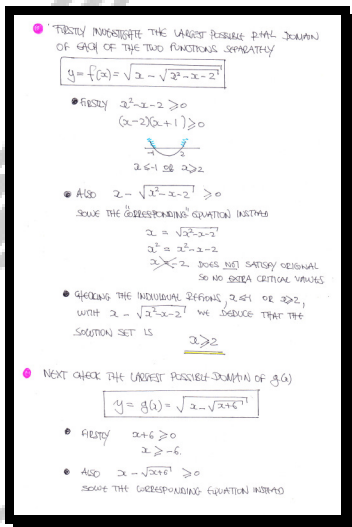 FIRSTLY INVESTIGATE THE LARGEST POSSIBLE REAL DOMAIN
OF EACH OF THE TWO FUNCTIONS SEPARATELY
y = f(x) = √(x - √(x² - x - 2))
• FIRSTLY x² - x - 2 ≥ 0
(x-2)(x+1) ≥ 0
-1 2
x ≤ -1 OR x ≥ 2
• ALSO x - √(x² - x - 2) ≥ 0
SOLVE THE "CORRESPONDING" EQUATION INSTEAD
x = √(x² - x - 2)
x² = x² - x - 2
x = -2 DOES NOT SATISFY ORIGINAL
SO NO EXTRA CRITICAL VALUES
• CHECKING THE INDIVIDUAL REGIONS, x ≤ -1 OR x ≥ 2,
WITH x - √(x² - x - 2) WE DEDUCE THAT THE
SOLUTION SET IS
x ≥ 2
NEXT CHECK THE LARGEST POSSIBLE DOMAIN OF g(x)
y = g(x) = √(x - √(x + 6))
• FIRSTLY x + 6 ≥ 0
x ≥ -6
• ALSO x - √(x + 6) ≥ 0
SOLVE THE CORRESPONDING EQUATION INSTEAD